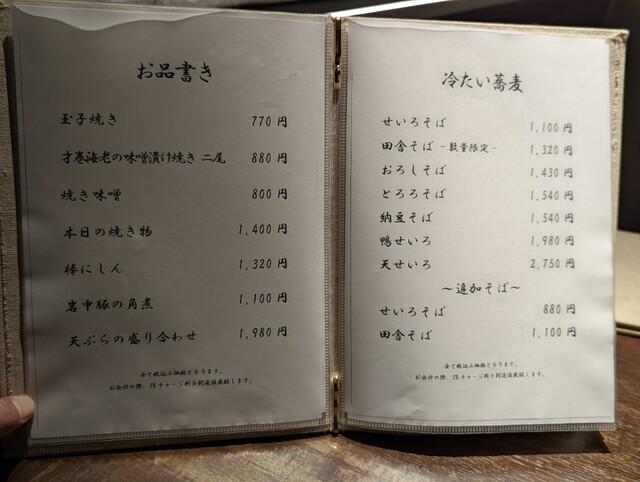 お品書き
玉子焼き 770 円
才巻海老の味噌漬け焼き 二尾 880 円
焼き味噌 800 円
本日の焼き物 1,400 円
棒にしん 1,320 円
岩中豚の角煮 1,100 円
天ぷらの盛り合わせ 1,980 円
全て税込み価格となります。
お会計の際、5%チャージ料を別途頂戴致します。
冷たい蕎麦
せいろそば 1,100 円
田舎そば －数量限定－ 1,320 円
おろしそば 1,430 円
とろろそば 1,540 円
納豆そば 1,540 円
鴨せいろ 1,980 円
天せいろ 2,750 円
～追加そば～
せいろそば 880 円
田舎そば 1,100 円
全て税込み価格となります。
お会計の際、5%チャージ料を別途頂戴致します。